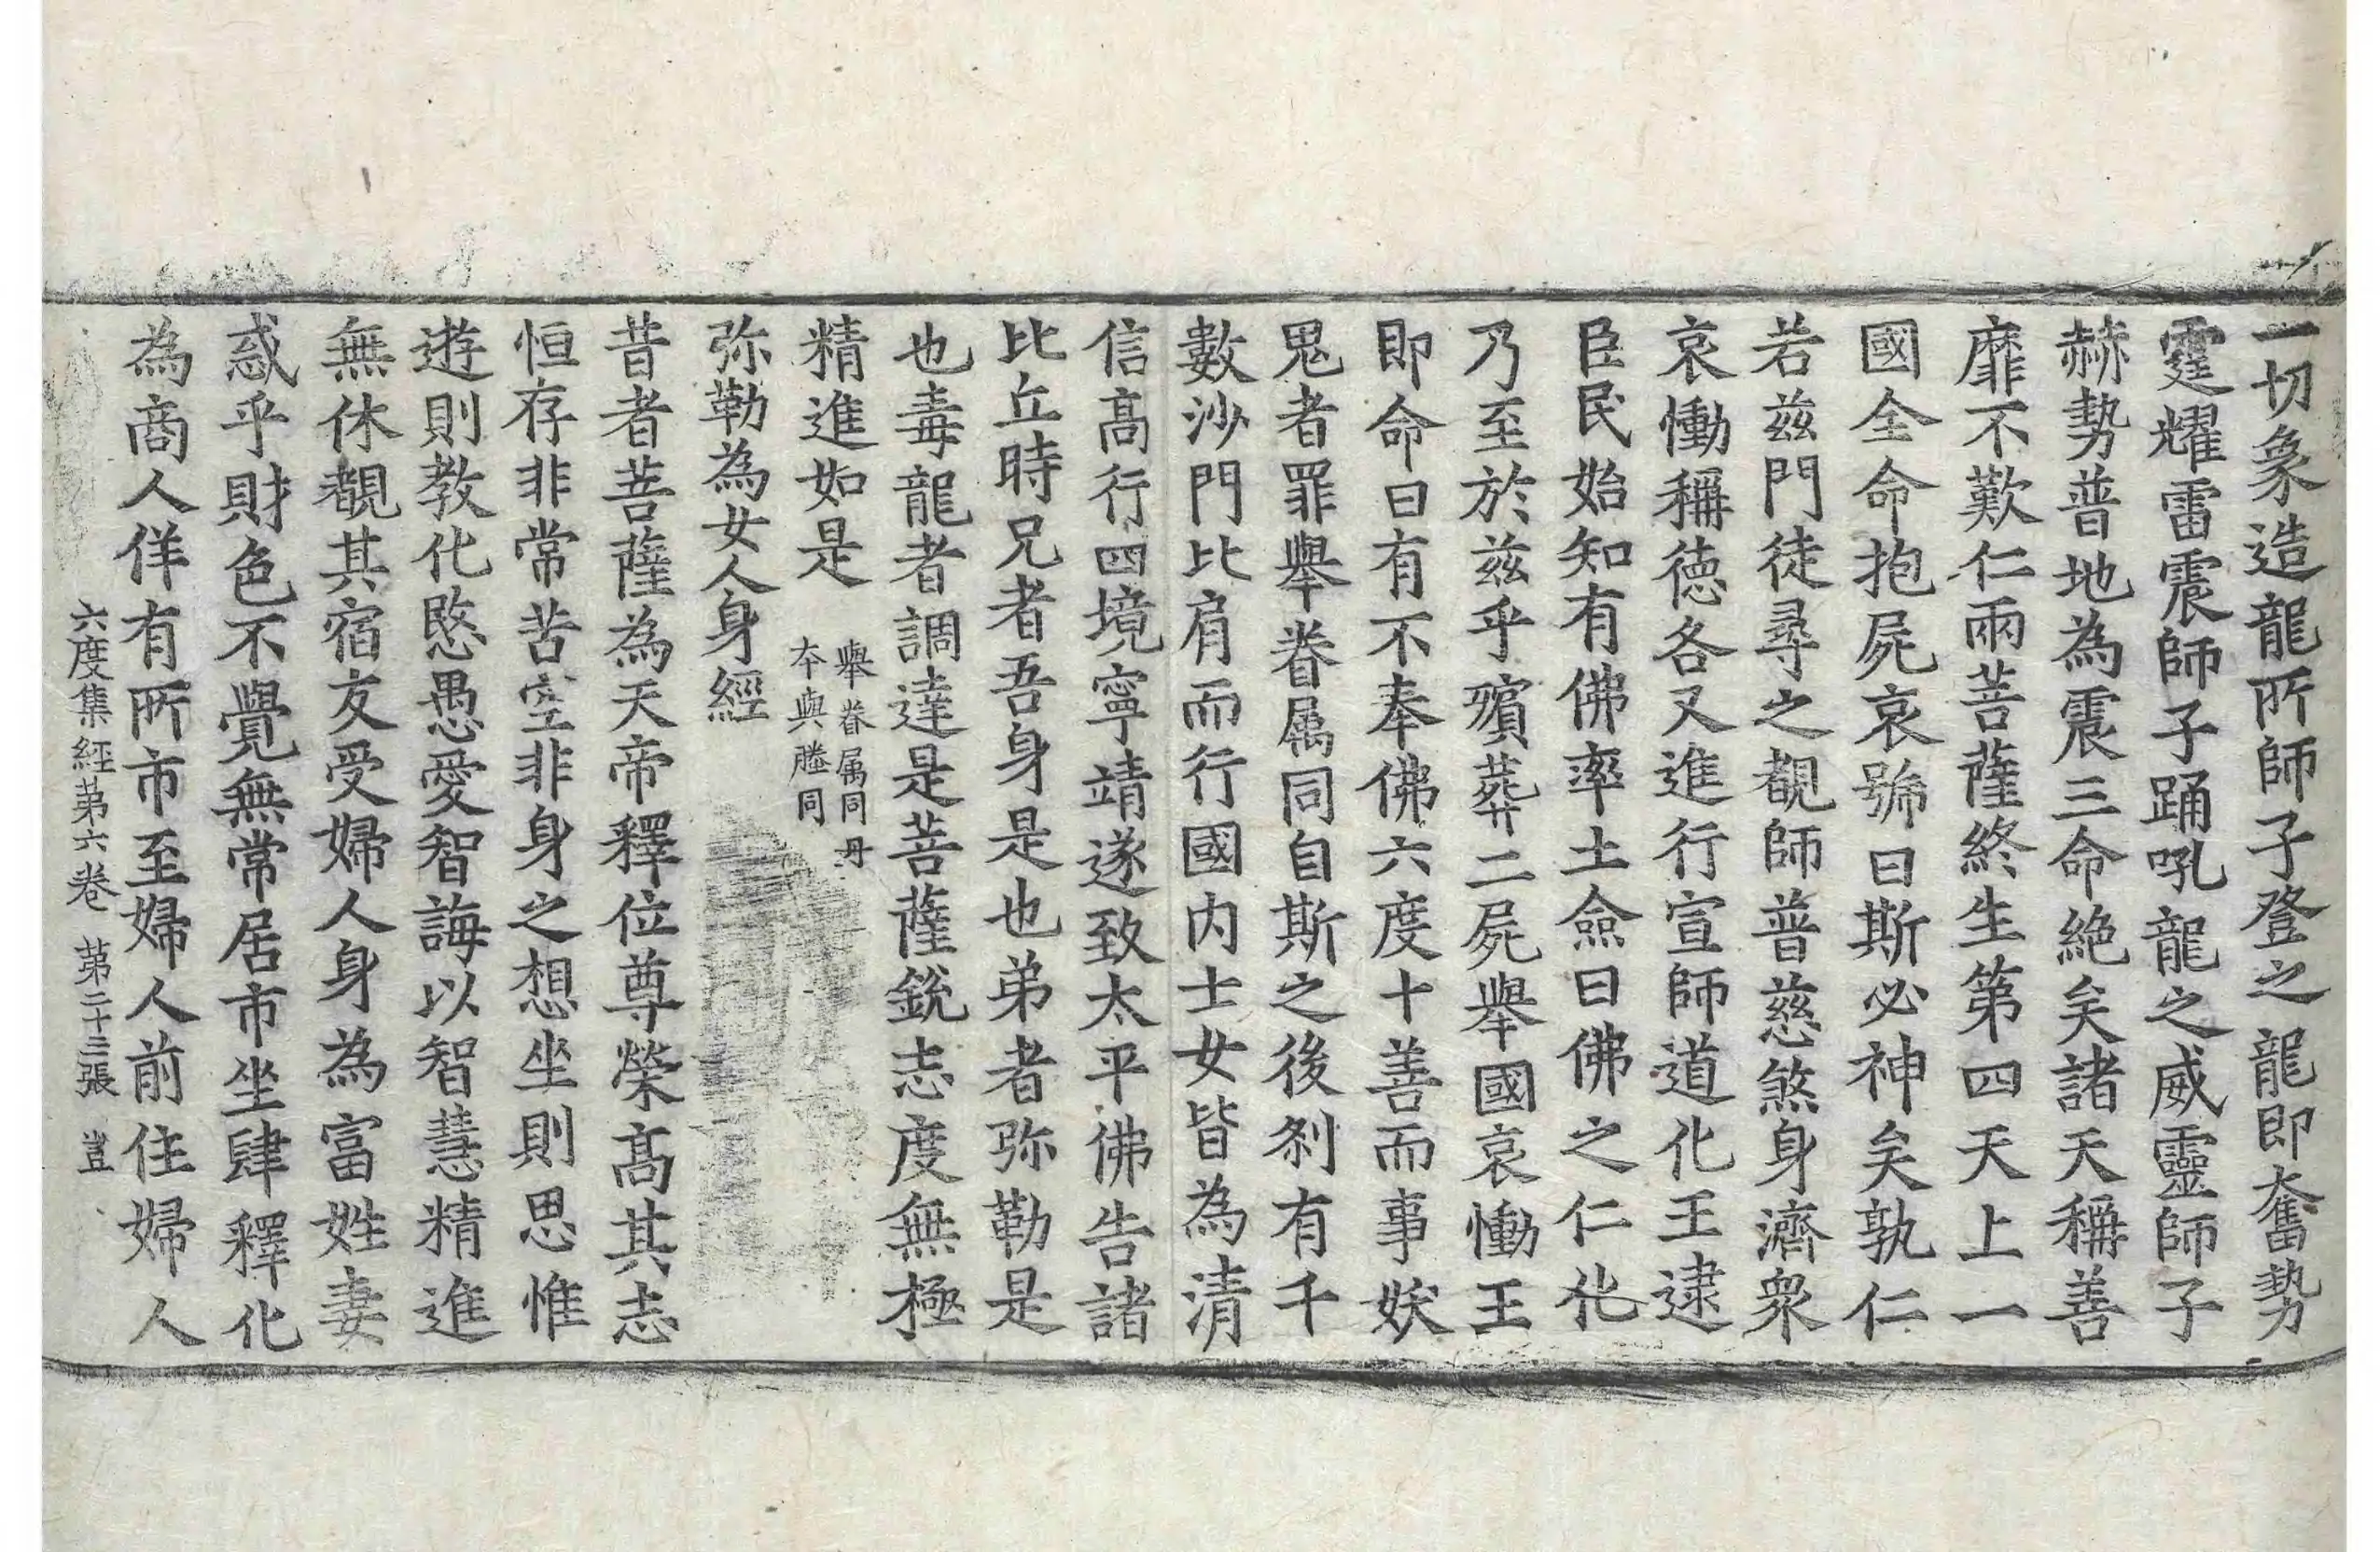 一切象造龍所師子登之龍即奮勢
霆耀雷震師子踊吼龍之威靈師子
赫勢普地為震三命絶矣諸天稱善
靡不歎仁兩菩薩終生第四天上一
國全命抱屍哀號曰斯必神矣孰仁
若兹門徒尋之覩師普慈煞身濟衆
哀慟稱德各又進行宣師道化王逮
臣民始知有佛率土僉曰佛之仁化
乃至於兹乎殯葬二屍舉國哀慟王
即命曰有不奉佛六度十善而事妖
鬼者罪舉眷属同自斯之後刹有千
數沙門比肩而行國内士女皆為清
信高行四境寧靖遂致太平佛告諸
比丘時兄者吾身是也弟者弥勒是
也毒龍者調達是菩薩銳志度無極
精進如是 舉眷属同丹
夲與塍同
弥勒為女人身經
昔者菩薩為天帝釋位尊榮高其志
恒存非常苦空非身之想坐則思惟
遊則教化愍愚愛智誨以智慧精進
無休覩其宿友受婦人身為富姓妻
惑乎財色不覺無常居市坐肆釋化
為商人佯有所市至婦人前住婦人
六度集經苐六卷 苐二十二張 豈